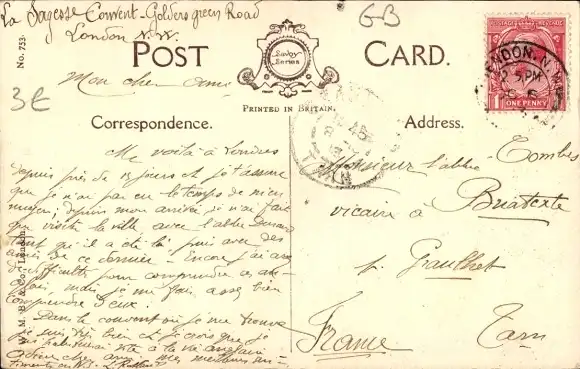 La Sagesse Convent - Golders green Road
London N.W.
GB
3E
No. 753.
POST CARD.
Savoy Series
PRINTED IN BRITAIN.
POSTAGE REVENUE
ONE PENNY
LONDON. N.W.
5. PM
TARN
Mon cher ami
Correspondence.
Address.
Me voilà à Londres
depuis près de 15 jours et je t'assure
que je n'ai pas eu le temps de
depuis mon arrivée je n'ai fait
que visiter la ville avec l'abbé
qu'il a été là puis avec des
amis de ce dernier - Encore j'ai assez
de difficulté pour comprendre ces
mais je me fais assez bien
comprendre d'eux.
Dans le couvent où je me trouve
je suis très bien et je crois que je
vite à la vie anglaise
cher ami mes meilleurs
Monsieur l'abbé Combes
vicaire à Briatexte
p. Graulhet
Tarn
France
London